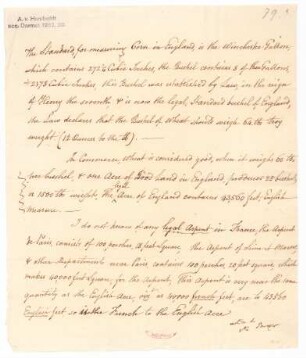 79
The Standard, for measuring Corn in England, is the Winchester Gallon,
which contains 272¼ Cubic Inches, the Bushel contains 8 of these Gallons,
or 2178 Cubic Inches, this Bushel was established by Law, in the reign
of Henry the seventh & is now the legal Standard bushel of England,
the Law declares that the Bushel of Wheat should weigh 64 lb Troy
weight (12 Ounces to the lb). —
In Commerce, Wheat is considered good, when it weighs 60 lb
per bushel, & one Acre of Good Land in England produces 25 bushels
or 1500 lb weight, the Acre of England contains 43,560 feet, English
Measure. —
I do not know of any legal Arpent in France, the Arpent
de Paris, consists of 100 perches, 18 feet square, the Arpent of
& other Departments near Paris contains 100 perches, 20 feet square, which
makes 40000 feet square, for the Arpent, this Arpent is very near the same
quantity as the English Acre, viz as 40000 french feet, are to 43560
English feet so is the French to the English Acre